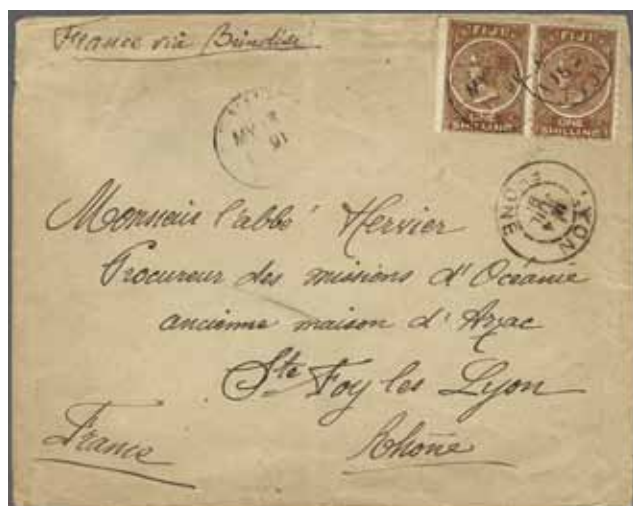 France via Brindisi
FIJI
ONE
SHILLING
FIJI
ONE
SHILLING
MY
91
LYON
RHONE
Monsieur l'abbé Hervier
Procureur des missions d'Océanie
ancienne maison d'Arzac
Ste Foy les Lyon
Rhône
France